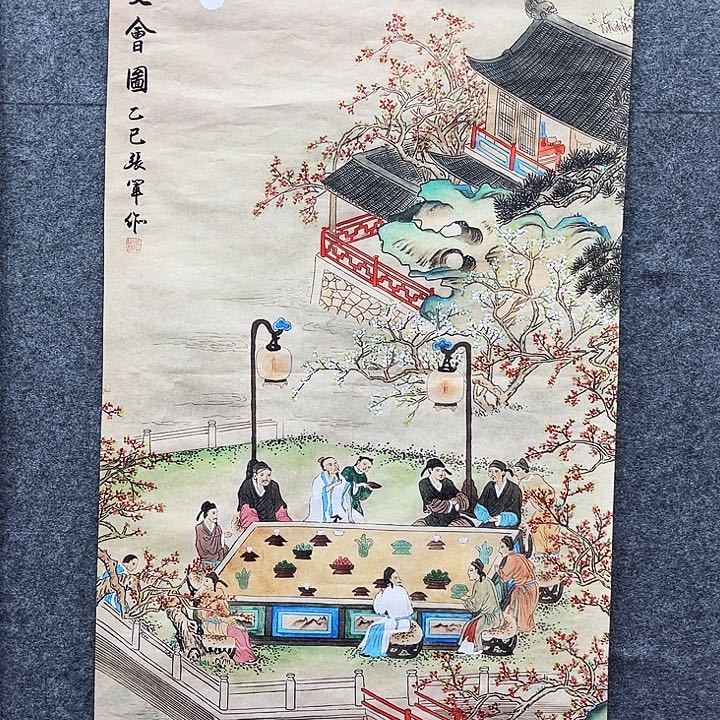 會圖
乙巳張軍作